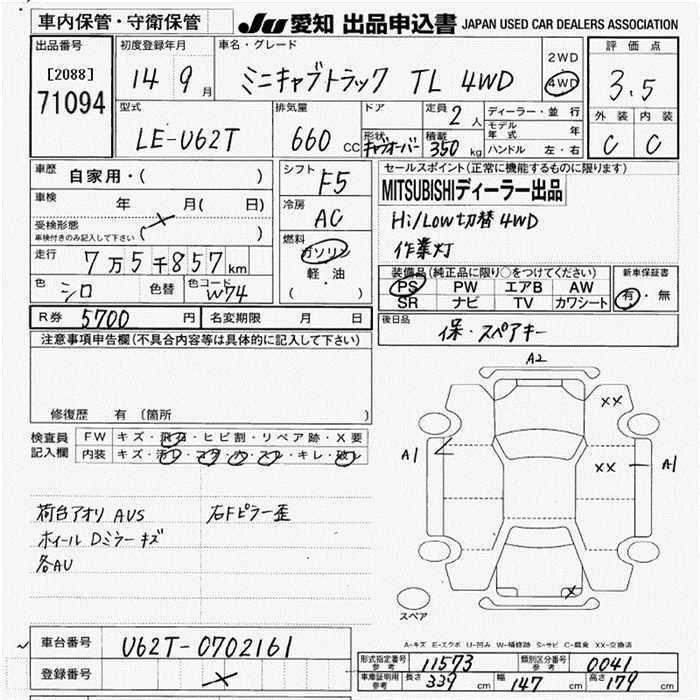 車内保管・守衛保管 JU 愛知 出品申込書 JAPAN USED CAR DEALERS ASSOCIATION
出品番号
[2088]
71094
初度登録年月
14 9 月
車名・グレード
ミニキャブトラック TL 4WD
2WD
4WD
評価点
3.5
外装 内装
C C
型式
LE-U62T
排気量
660 CC
ドア
形状
キャブオーバー
定員 2 人
積載 350 kg
ディーラー・並行
モデル年式 年
ハンドル 左・右
車歴 自家用・( )
車検 年 月( 日)
受検形態
車検付きのみ記入して下さい ( )
走行 7万5千857km
色 シロ 色替 色コード W74
シフト F5
冷房 AC
燃料
ガソリン
軽・油
( )
セールスポイント(正常に機能するものに限ります)
MITSUBISHIディーラー出品
Hi/Low切替4WD
作業灯
装備品(純正品に限り○をつけてください)
PS PW エアB AW
SR ナビ TV カワシート
新車保証書
有・無
R券 5700 円 名変期限 月 日
後日品 保・スペアキー
注意事項申告欄(不具合内容等は具体的に記入して下さい)
修復歴 有 (箇所 )
検査員記入欄
FW キズ・飛石・ヒビ割・リペア跡・X要
内装 キズ・汚レ・コゲ・穴・スレ・キレ・破レ
荷台アオリ AUS 右Fピラー歪
ホイール Dミラーキズ
各AU
A2
XX
A1
XX
A1
X
スペア
A-キズ E-エクボ U-凹み W-補修跡 S-サビ C-腐食 XX-交換済
車台番号 U62T-0702161
登録番号
形式指定番号 参考 11573 類別区分番号 参考 0041
車庫証明用 参考 長さ 339 cm 幅 147 cm 高さ 179 cm